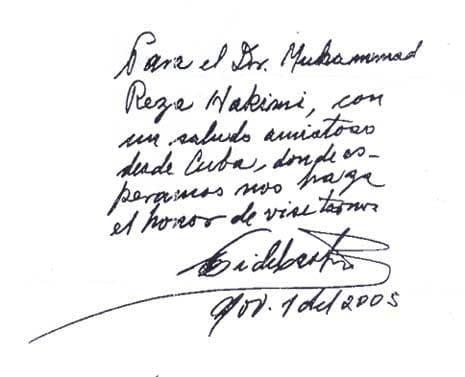 Para el Dr. Muhammad
Reza Hakimi, con
un saludo amistoso
desde Cuba, donde es-
peramos nos haga
el honor de visitarnos
Fidel Castro
Nov. 1 del 2005